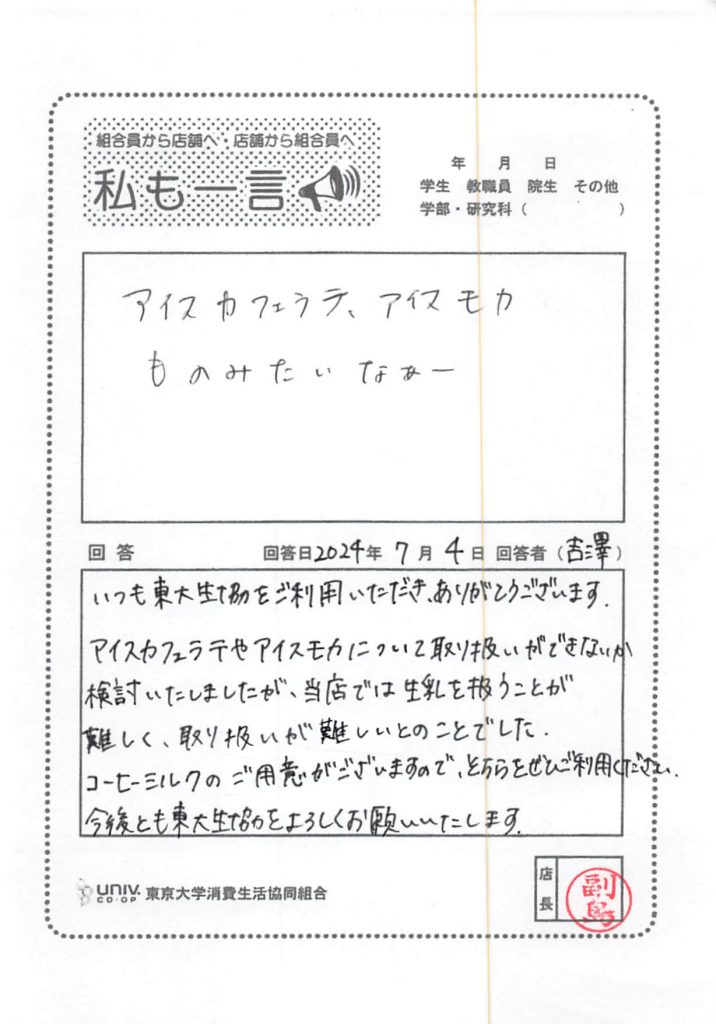 組合員から店舗へ・店舗から組合員へ
私も一言
年 月 日
学生 教職員 院生 その他
学部・研究科（ ）
アイスカフェラテ、アイスモカ
ものみたいなぁー
回答 回答日2024年7月4日 回答者（吉澤）
いつも東大生協をご利用いただき、ありがとうございます。
アイスカフェラテやアイスモカについて取り扱いができないか
検討いたしましたが、当店では生乳を扱うことが
難しく、取り扱いが難しいとのことでした。
コーヒーミルクのご用意がございますので、そちらをぜひご利用ください。
今後とも東大生協をよろしくお願いいたします。
UNIV. CO-OP 東京大学消費生活協同組合
店長
副島